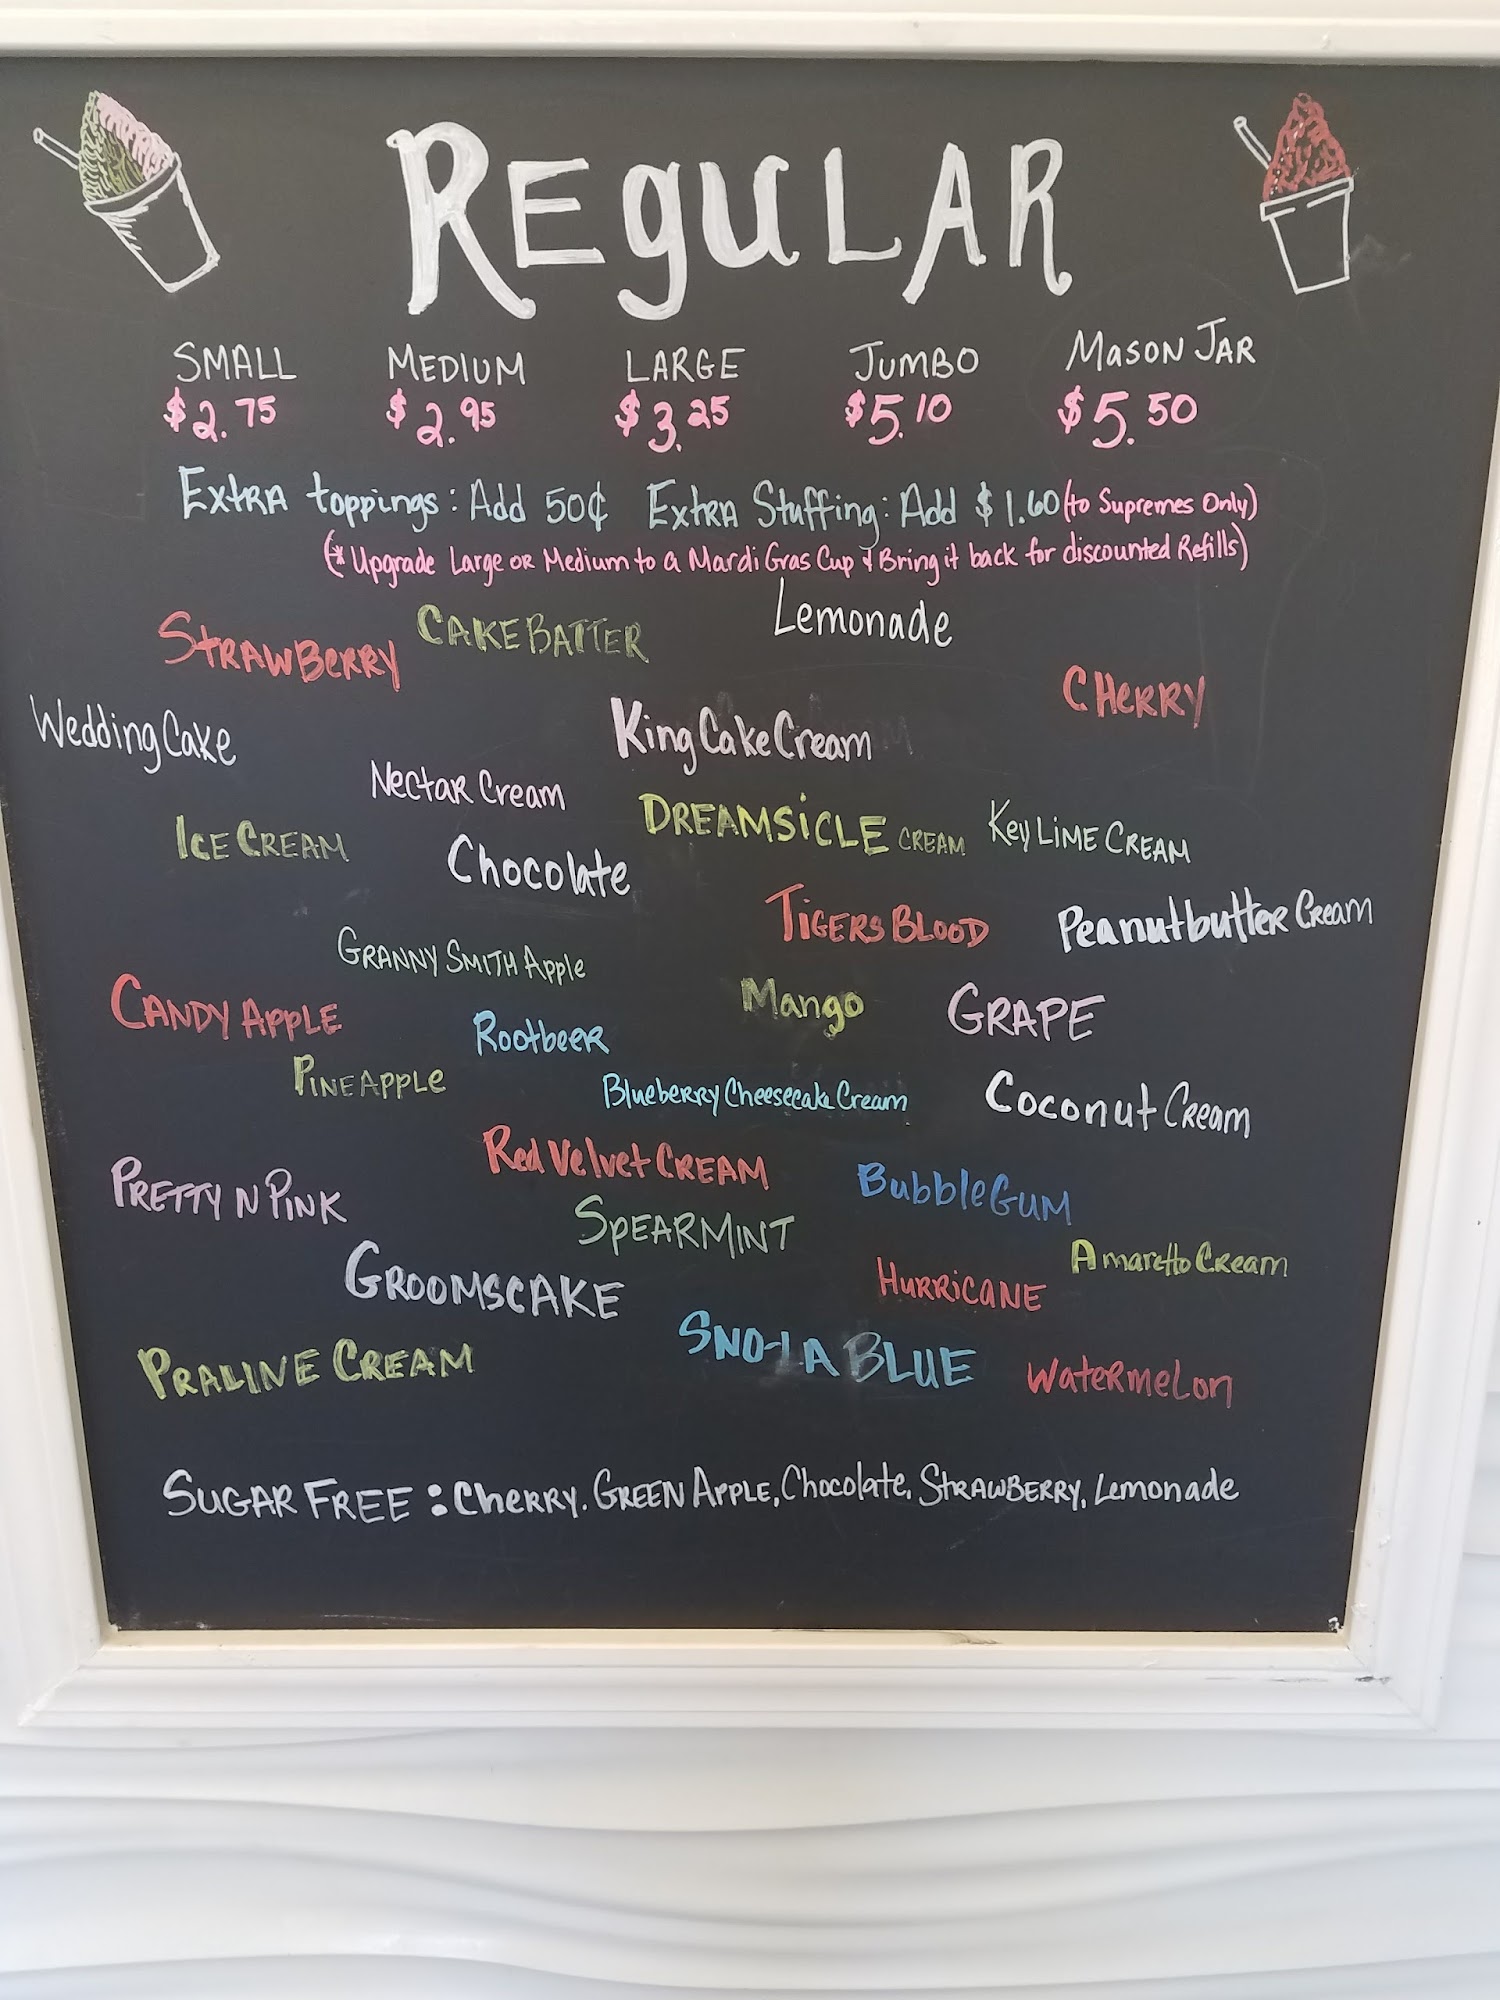 REgULAR
SMALL MEDIUM LARGE JUMBO MASON JAR
$2.75 $2.95 $3.25 $5.10 $5.50
Extra toppings: Add 50¢ Extra Stuffing: Add $1.60 (to Supremes Only)
(* Upgrade Large or Medium to a Mardi Gras Cup & Bring it back for discounted Refills)
Strawberry CAKE BATTER Lemonade
CHERRY
Wedding Cake King Cake Cream
Nectar Cream
ICE CREAM DREAMSiCLE CREAM Key LIME CREAM
Chocolate
TiGERS BLOOD Peanutbutter Cream
GRANNY SMITH Apple
CANDY APPLE Mango GRAPE
Rootbeer
PINEAPPLE Blueberry Cheesecake Cream Coconut Cream
Red Velvet CREAM
PRETTY N PINK BubbleGUM
SPEARMINT
GROOMSCAKE HURRiCANE Amaretto Cream
PRALINE CREAM SNO-LA BLUE Watermelon
SUGAR FREE: CHERRY. GREEN APPLE, Chocolate, STRAWBERRY, Lemonade